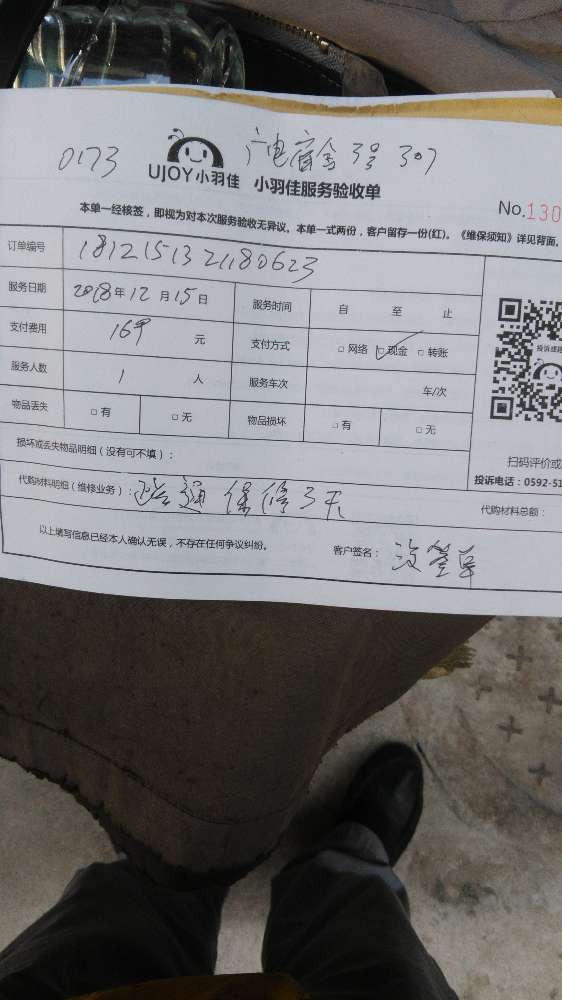 0173 广电宿舍3号307
UJOY小羽佳 小羽佳服务验收单
No.130
本单一经核签，即视为对本次服务验收无异议。本单一式两份，客户留存一份(红)。《维保须知》详见背面。
订单编号 1812151321180623
服务日期 2018年12月15日 服务时间 自 至 止
支付费用 169 元 支付方式 □网络 ☑现金 □转账
服务人数 1 人 服务车次 车/次
物品丢失 □有 □无 物品损坏 □有 □无
扫码评价或
损坏或丢失物品明细（没有可不填）：
投诉电话：0592-51
代购材料明细（维修业务）： 疏通 保修3天 代购材料总额：
以上填写信息已经本人确认无误，不存在任何争议纠纷。 客户签名： 没签单